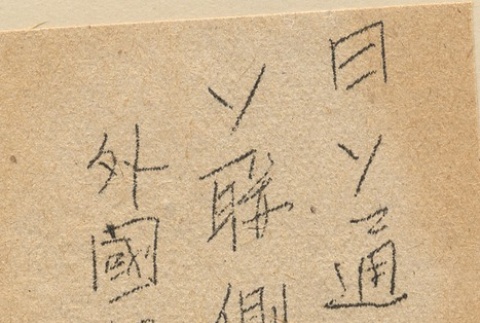 日ソ通
ソ聯側
外國